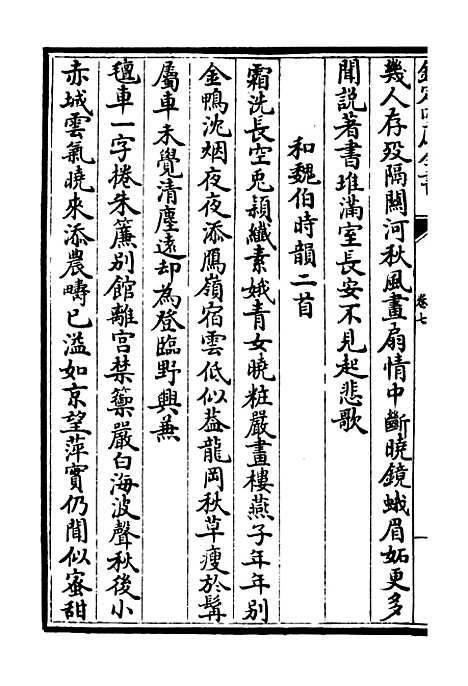 欽定四庫全書
卷七
幾人存歿隔關河秋風畫扇情中斷曉鏡蛾眉妬更多
聞說著書堆滿室長安不見起悲歌
和魏伯時韻二首
霜洗長空兎穎纖素娥青女曉粧嚴畫樓燕子年年別
金鴨沈烟夜夜添鴈嶺宿雲低似葢龍岡秋草瘦於髯
屬車未覺清塵遠却為登臨野興兼
氊車一字捲朱簾別館離宫禁籞嚴白海波聲秋後小
赤城雲氣曉來添農疇已溢如京望萍實仍聞似蜜甜